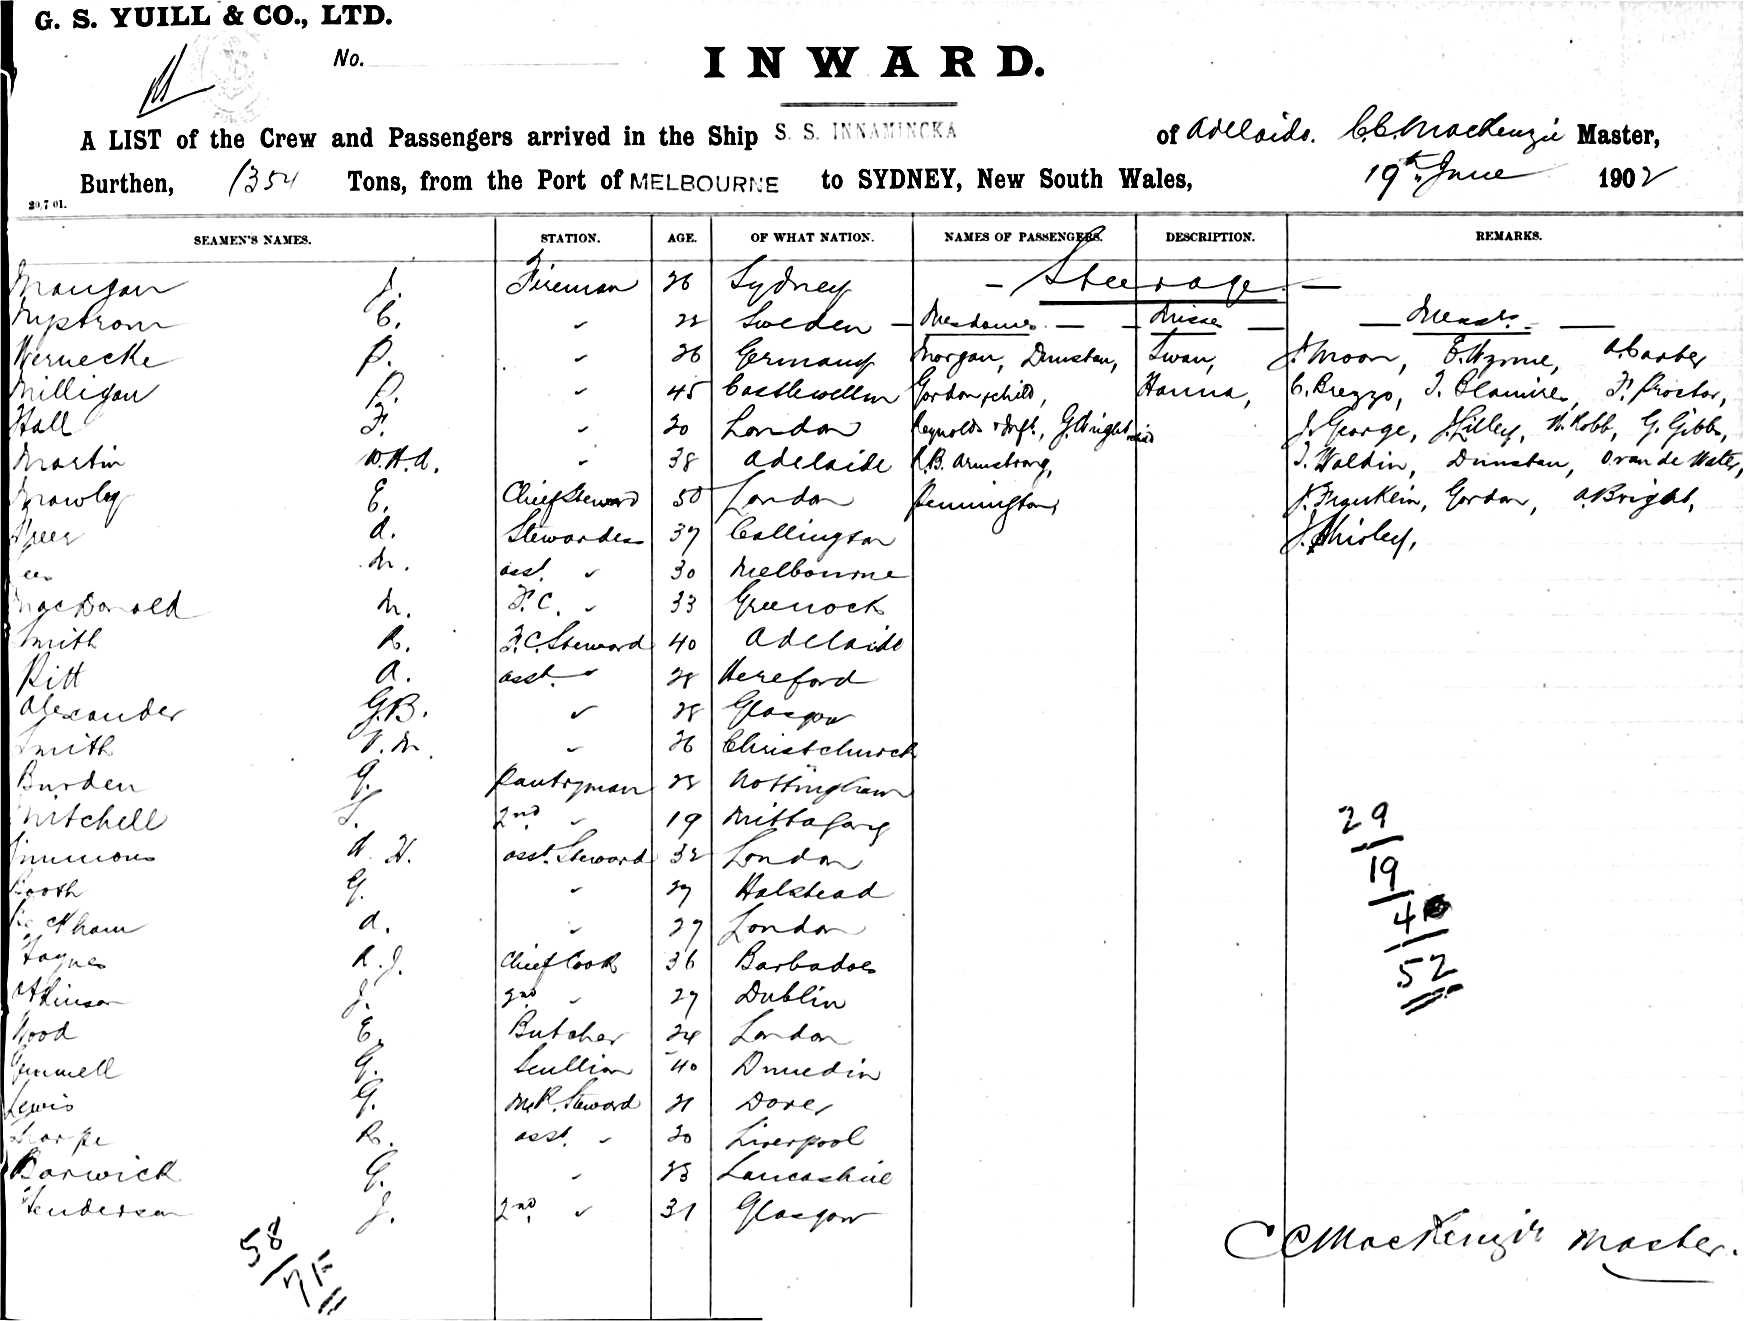 G. S. YUILL & CO., LTD.
No.
INWARD.
A LIST of the Crew and Passengers arrived in the Ship S. S. INNAMINCKA of Adelaide. C.C. MacKenzie Master,
Burthen, 1354 Tons, from the Port of MELBOURNE to SYDNEY, New South Wales, 19th June 1902
20.7 01.
SEAMEN'S NAMES. STATION. AGE. OF WHAT NATION. NAMES OF PASSENGERS. DESCRIPTION. REMARKS.
Mangan J. Fireman 26 Sydney — Steerage —
Nystrom E. " 22 Sweden — Mesdames — — Misses — — Messrs. —
Wernecke P. " 26 Germany Morgan, Dunstan, Swan, J. Moon, E. Wynne, A. Carter
Milligan P. " 45 Castlewellan Gordon & child, Hanna, C. Brezzo, J. Blamires, F. Proctor,
Hall F. " 20 London Reynolds & Inft., G. Wright & child J. George, J. Lilley, W. Robb, G. Gibbs,
Martin W.H.A. " 38 Adelaide R.B. Armstrong, J. Waldin, Dunstan, O. van de Water,
E. Chief Steward 50 London Pennington J. Franklin, Gordon, A. Bright,
A. Stewardess 37 Callington J. Shirley,
M. asst. " 30 Melbourne
MacDonald M. F.C. " 33 Greenock
Smith R. F.C. Steward 40 Adelaide
Pitt A. asst. " 28 Hereford
Alexander G.B. " 28 Glasgow
Smith V.M. " 26 Christchurch
Burden G. Pantryman 28 Nottingham
Mitchell S. 2nd " 19 Mittagong
Simmons A. H. asst. Steward 32 London
Booth G. " 27 Halstead
A. " 27 London
Haynes R.J. Chief Cook 36 Barbadoes
Atkinson J. 2nd " 27 Dublin
Wood E. Butcher 24 London
Gemmell G. Scullion 40 Dunedin
Lewis G. M.R. Steward 21 Dover
Sharpe R. asst. " 20 Liverpool
Barwick G. " 23 Lancashire
Henderson J. 2nd " 31 Glasgow
29
19
4
52
58
75
CC MacKenzie Master.